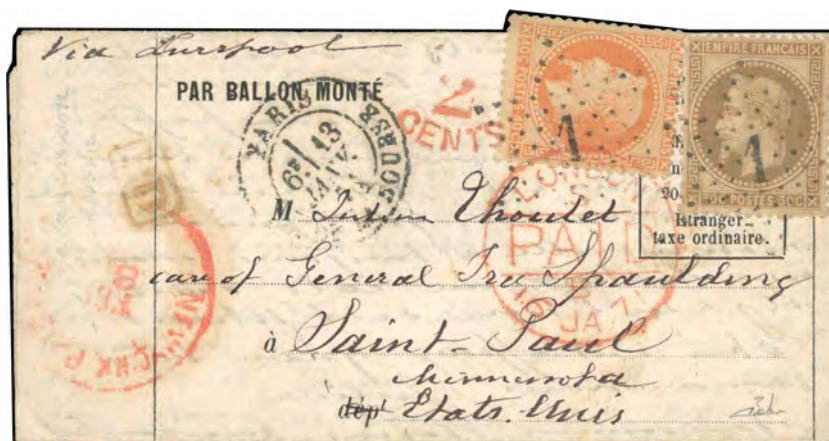 Via Liverpool
PAR BALLON MONTÉ
PARIS
BOURSE
6E 13
JANV.
2
CENTS
1
EMPIRE FRANÇAIS
1
30C POSTES 30C
LONDON
PAID
JA 71
NEW YORK
20
Etranger
taxe ordinaire.
M Julien Thoulet
care of General Ira Spaulding
à Saint-Paul
Minnesota
dépt Etats-Unis